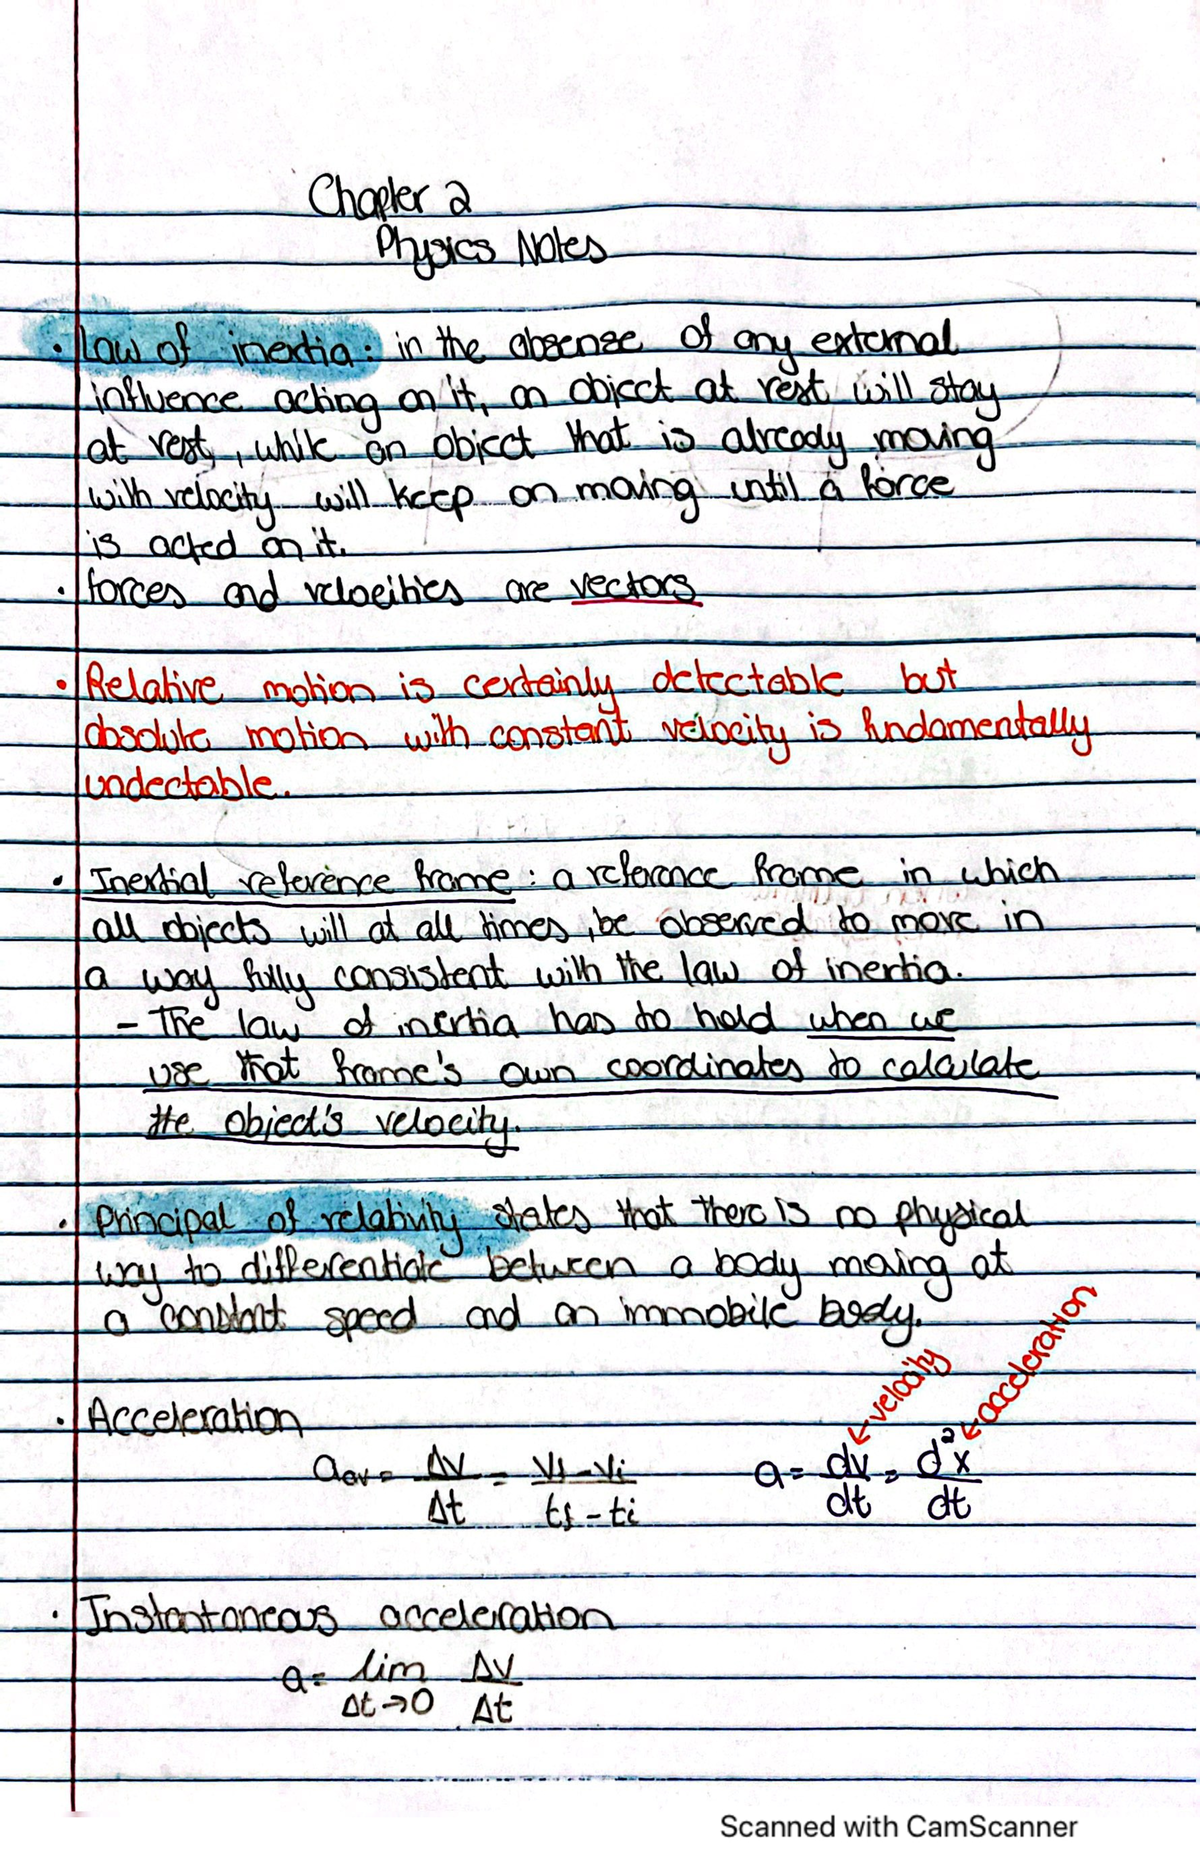 Chapter 2
Physics Notes
· Law of inertia: in the absense of any external
influence acting on it, an object at rest will stay
at rest, while an object that is already moving
with velocity will keep on moving until a force
is acted on it.
· forces and velocities are vectors
· Relative motion is certainly detectable but
absolute motion with constant velocity is fundamentally
undectable.
· Inertial reference frame: a reference frame in which
all objects will at all times, be observed to move in
a way fully consistent with the law of inertia.
- The law of inertia has to hold when we
use that frame's own coordinates to calculate
the object's velocity.
· Principal of relativity states that there is no physical
way to differentiate between a body moving at
a constant speed and an immobile body.
· Acceleration
← velocity
← acceleration
aav = Δv/Δt = vf - vi / tf - ti    a = dv/dt = d²x/dt
· Instantaneous acceleration
a = lim Δt→0 Δv/Δt
Scanned with CamScanner